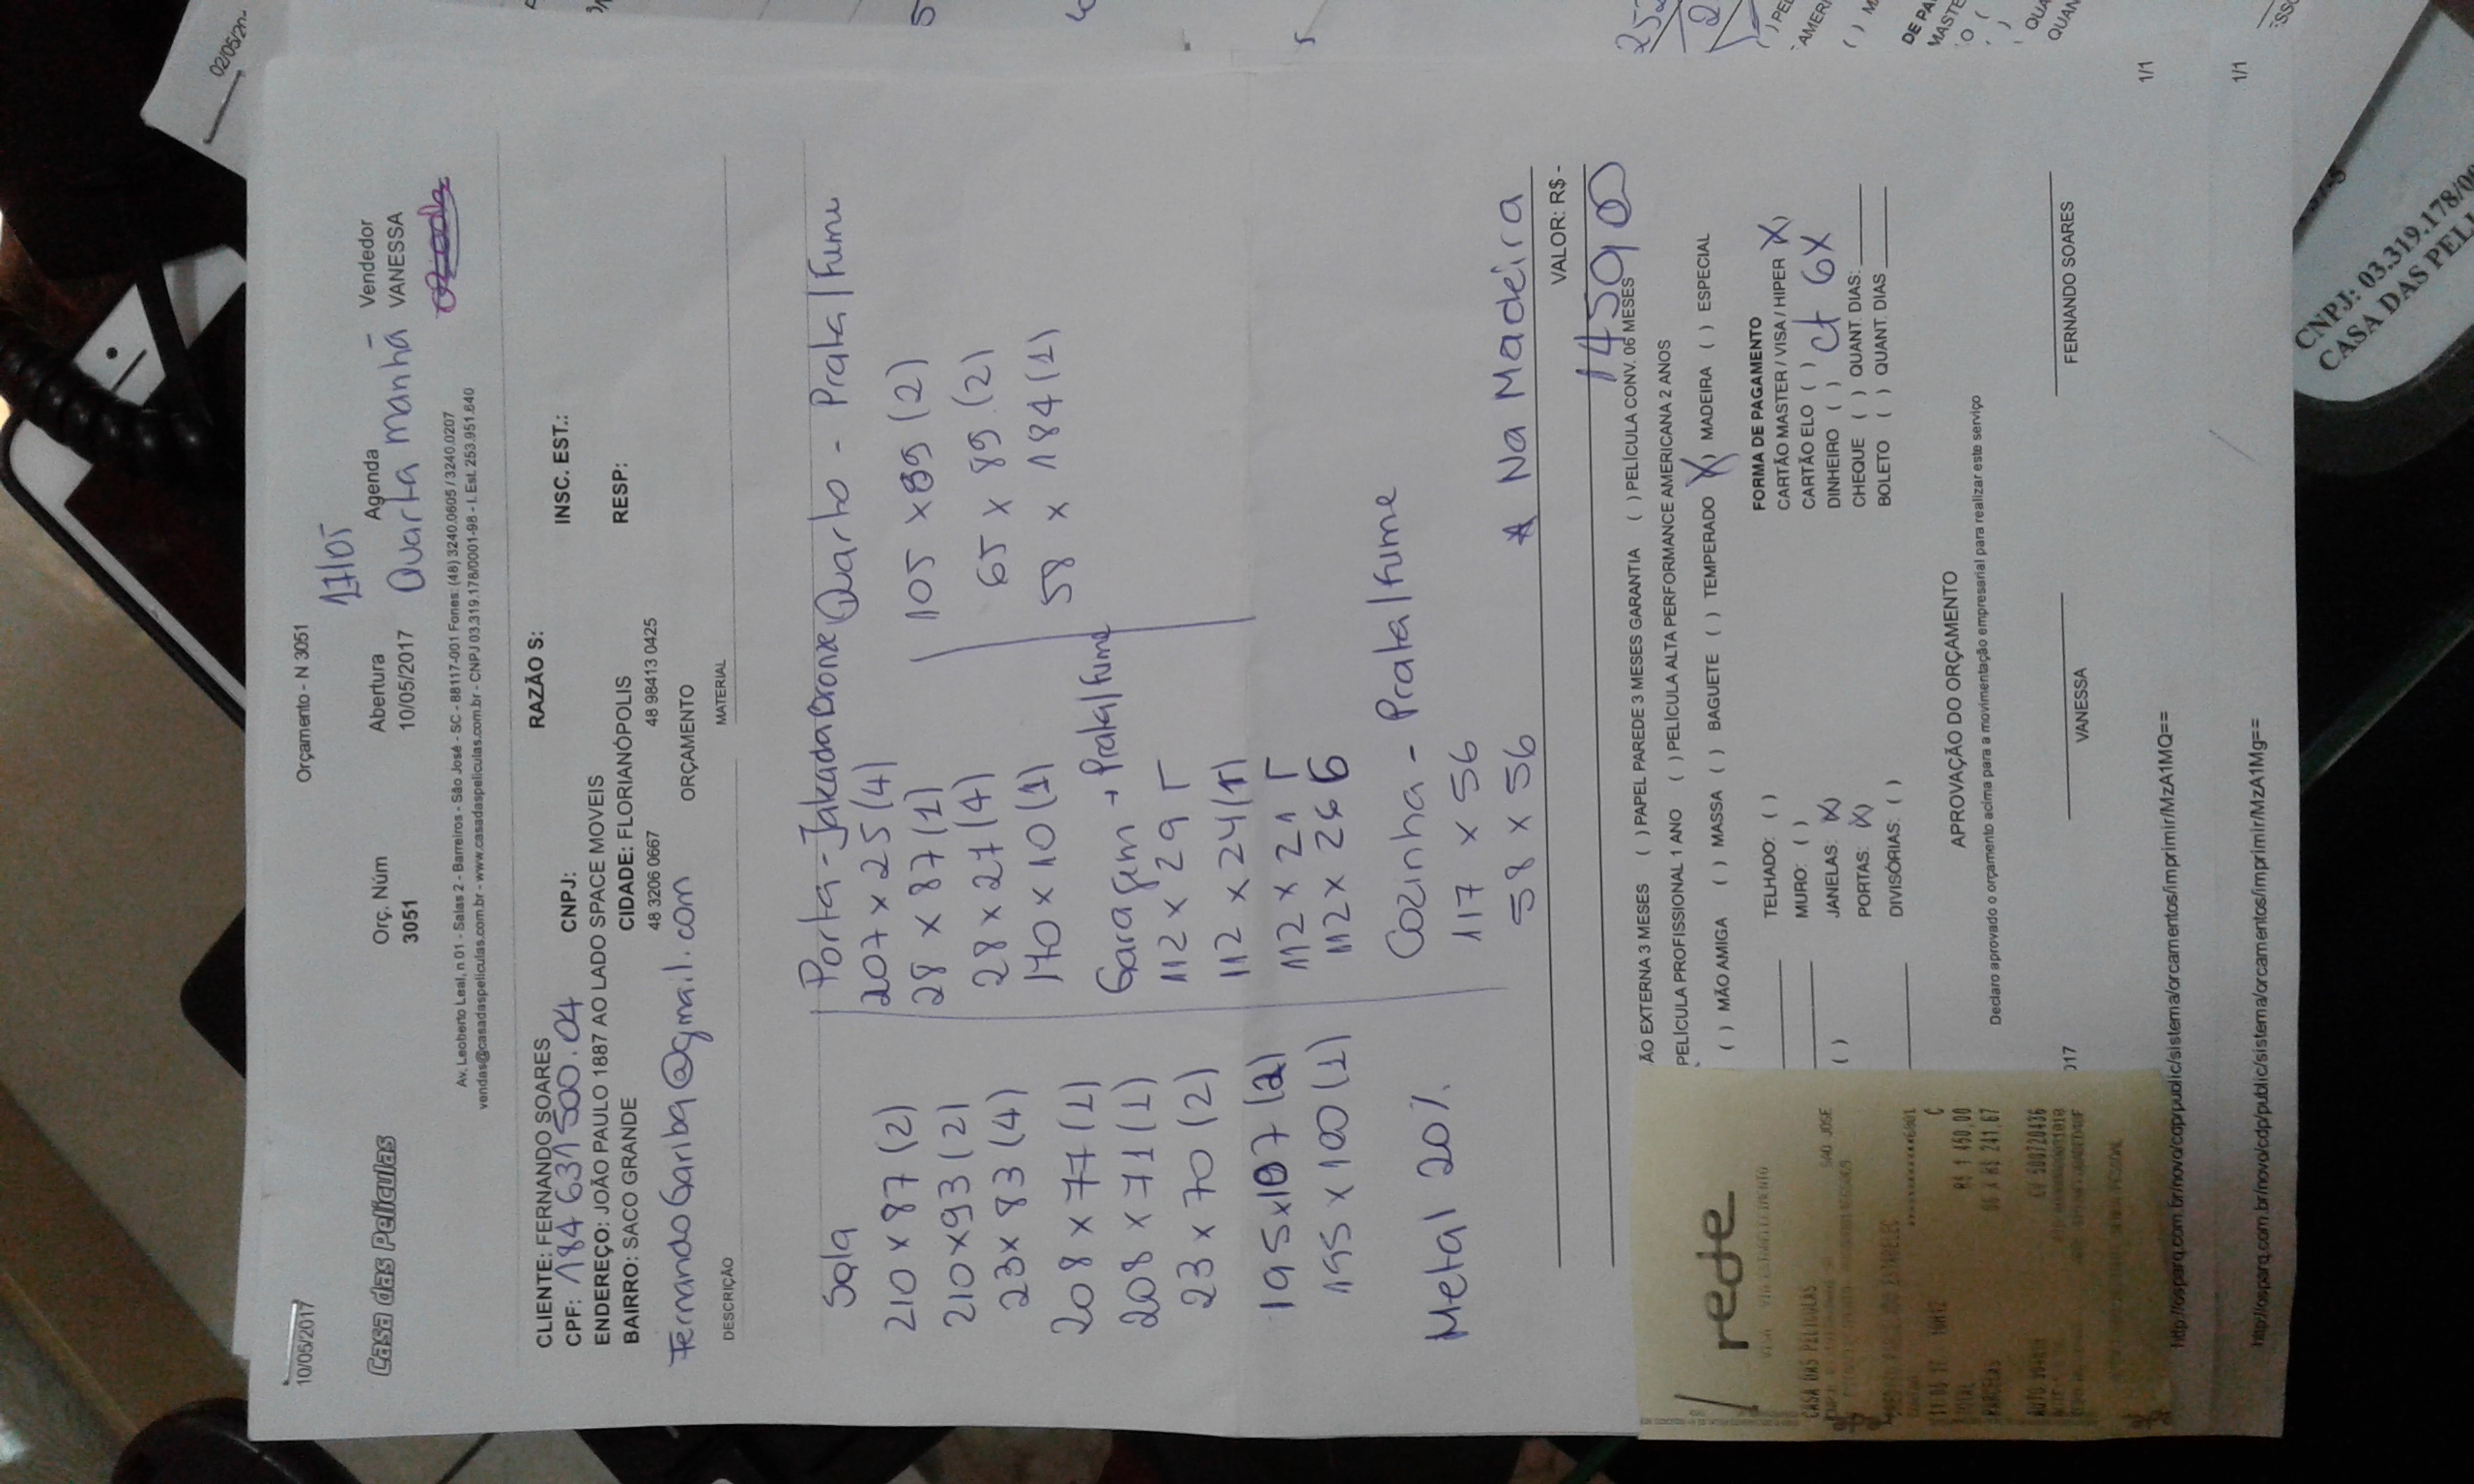 10/05/2017
Orçamento - N 3051
Casa das Películas
Orç. Núm
3051
Abertura
10/05/2017
17/05
Agenda
Quarta manhã
Vendedor
VANESSA
Av. Leoberto Leal, n 01 - Salas 2 - Barreiros - São José - SC - 88117-001 Fones: (48) 3240.0605 / 3240.0207
vendas@casadaspeliculas.com.br - www.casadaspeliculas.com.br - CNPJ 03.319.178/0001-98 - I. Est. 253.951.640
CLIENTE: FERNANDO SOARES
RAZÃO S:
CPF: 184 631 500.04
CNPJ:
INSC. EST.:
ENDEREÇO: JOÃO PAULO 1887 AO LADO SPACE MOVEIS
BAIRRO: SACO GRANDE
CIDADE: FLORIANÓPOLIS
RESP:
48 3206 0667
48 98413 0425
FernandoGariba@gmail.com
ORÇAMENTO
DESCRIÇÃO
MATERIAL
Sala
210 x 87 (2)
210 x 93 (2)
23 x 83 (4)
208 x 77 (1)
208 x 71 (1)
23 x 70 (2)
195 x 107 (2)
195 x 100 (1)
Metal 20%
Porta - Jateada Bronze
207 x 25 (4)
28 x 87 (1)
28 x 27 (4)
170 x 10 (1)
Garagem → Prata/Fume
112 x 29
112 x 24
112 x 21
112 x 266
Cozinha - Prata/Fume
117 x 56
58 x 56
Quarto - Prata/Fume
105 x 89 (2)
65 x 89 (2)
58 x 184 (1)
* Na Madeira
VALOR: R$ -
1450,00
ÃO EXTERNA 3 MESES ( ) PAPEL PAREDE 3 MESES GARANTIA ( ) PELÍCULA CONV. 06 MESES
PELÍCULA PROFISSIONAL 1 ANO ( ) PELÍCULA ALTA PERFORMANCE AMERICANA 2 ANOS
( ) MÃO AMIGA ( ) MASSA ( ) BAGUETE ( ) TEMPERADO (X) MADEIRA ( ) ESPECIAL
TELHADO: ( )
MURO: ( )
JANELAS: (X)
PORTAS: (X)
DIVISÓRIAS: ( )
FORMA DE PAGAMENTO
CARTÃO MASTER / VISA / HIPER (X)
CARTÃO ELO ( )
DINHEIRO ( )
ct 6X
CHEQUE ( ) QUANT. DIAS:
BOLETO ( ) QUANT. DIAS
APROVAÇÃO DO ORÇAMENTO
Declaro aprovado o orçamento acima para a movimentação empresarial para realizar este serviço
017
VANESSA
FERNANDO SOARES
rede
CASA DAS PELICULAS
SAO JOSE
R$ 1.450,00
PARCELAS
06 X R$ 241,67
http://osparq.com.br/novo/cdp/public/sistema/orcamentos/imprimir/MzA1MQ==
1/1
http://osparq.com.br/novo/cdp/public/sistema/orcamentos/imprimir/MzA1Mg==
1/1
CNPJ: 03.319.178/00
CASA DAS PELI